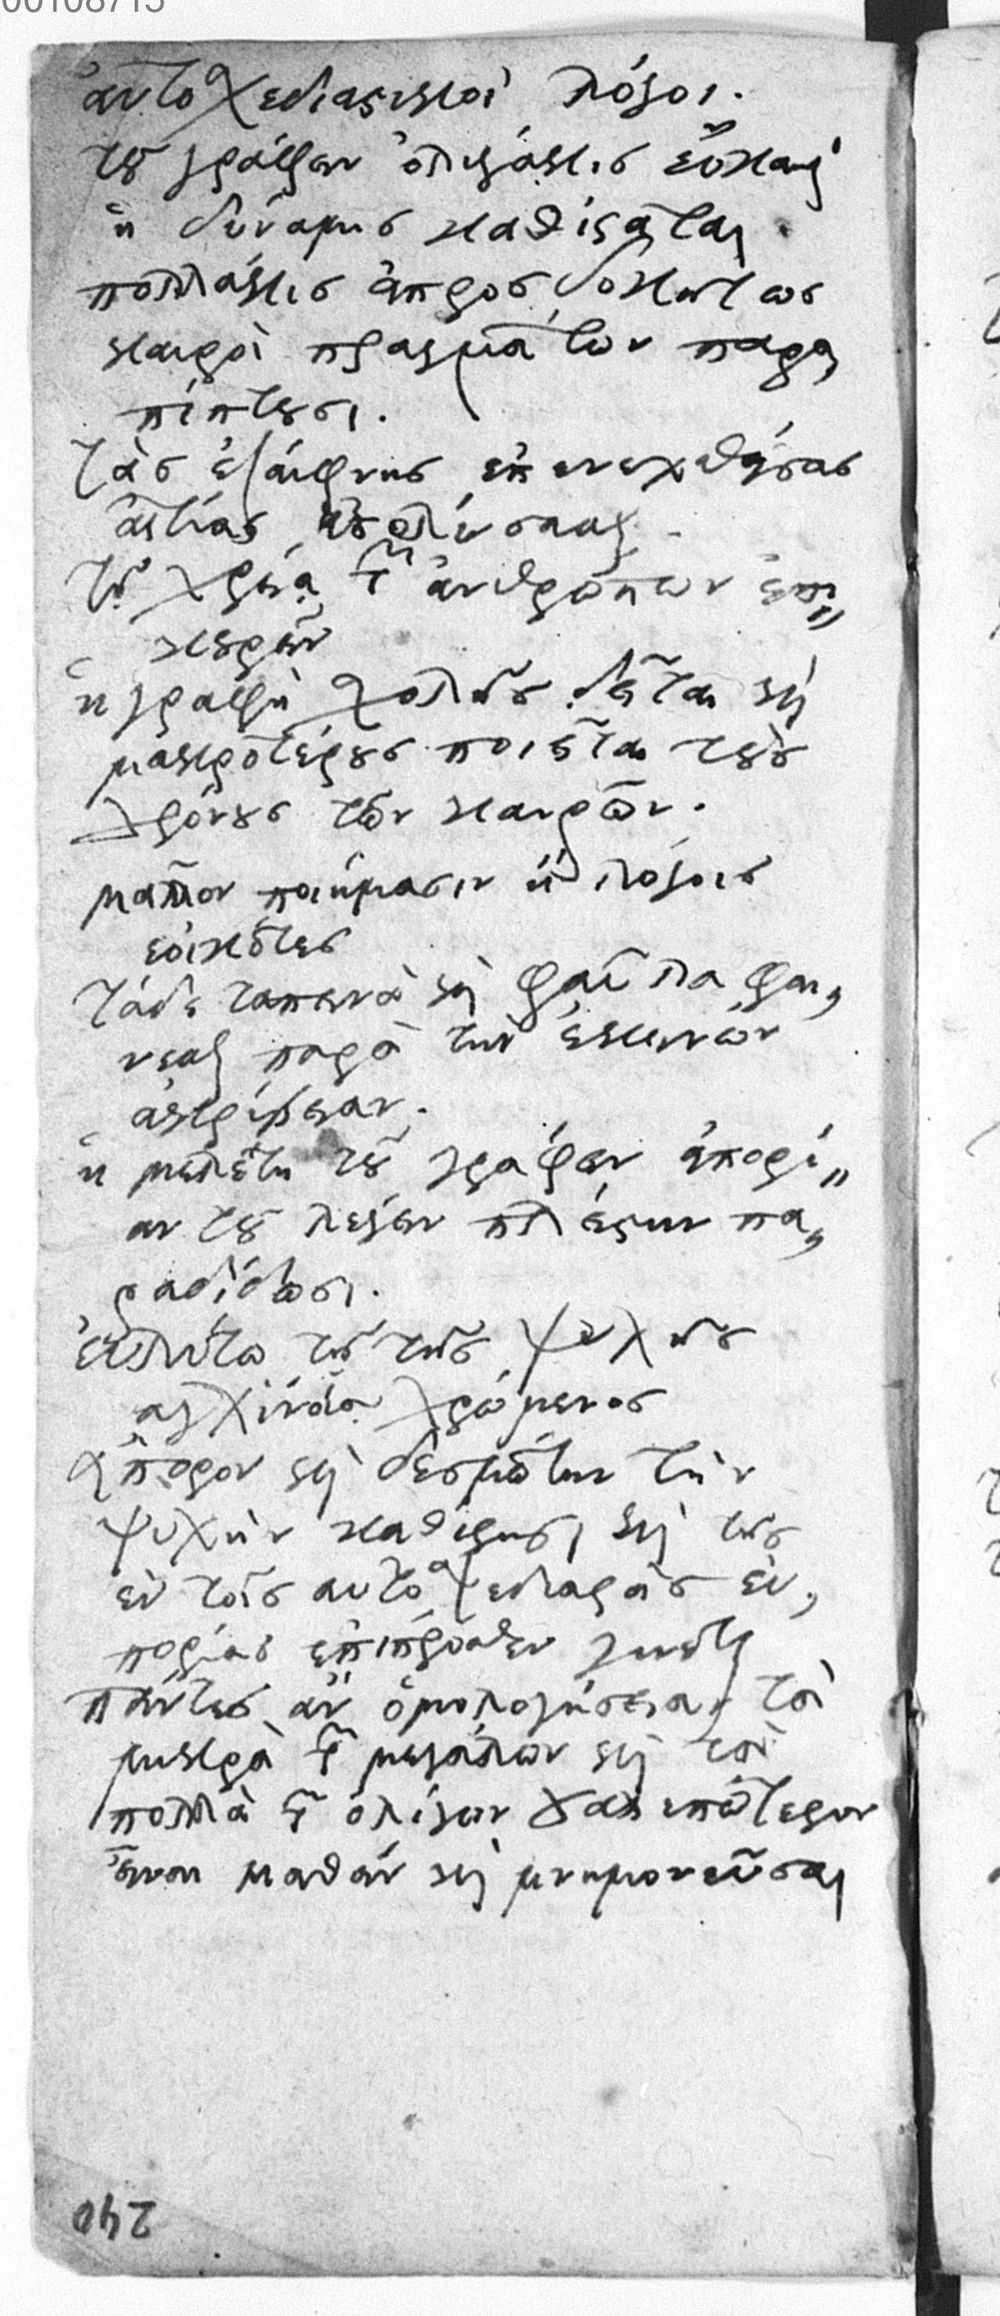 00108713
αὐτοσχεδιαστικοὶ λόγοι.
τοῦ γράφειν ὀλιγάκις εὔκαιρ
ἡ δύναμις καθίσταται.
πολλάκις ἀπροσδοκήτως
καιροὶ πραγμάτων παρα,
πίπτουσι.
τὰς ἐξαίφνης ἐπενεχθείσας
αἰτίας ἀπολύσασθαι.
τῇ χρείᾳ τῶν ἀνθρώπων ἐπι„
κουρεῖν
ἡ γραφὴ σχολῆς δεῖται καὶ
μακροτέρους ποιεῖται τοὺς
χρόνους τῶν καιρῶν.
μᾶλλον ποιήμασιν ἢ λόγοις
ἐοικότες
τάδε ταπεινὰ καὶ φαῦλα φαί,
νεσθαι παρὰ τὴν ἐκείνων
ἀκρίβειαν.
ἡ μελέτη τοῦ γράφειν ἀπορί„
αν τοῦ λέγειν πλείστην πα,
ραδίδωσι.
εὐλύτῳ τῇ τῆς ψυχῆς
ἀγχινοίᾳ χρώμενος
ἄπορον καὶ δεσμώτην τὴν
ψυχὴν καθίστησι, καὶ τῆς
ἐν τοῖς αὐτοσχεδιαστοῖς εὐ,
πορίας ἐπίπροσθεν γίνεται
πάντες ἂν ὁμολογήσειαν τὰ
μικρὰ τῶν μεγάλων καὶ τὰ
πολλὰ τῶν ὀλίγων χαλεπώτερον
εἶναι μαθεῖν καὶ μνημονεῦσαι
240